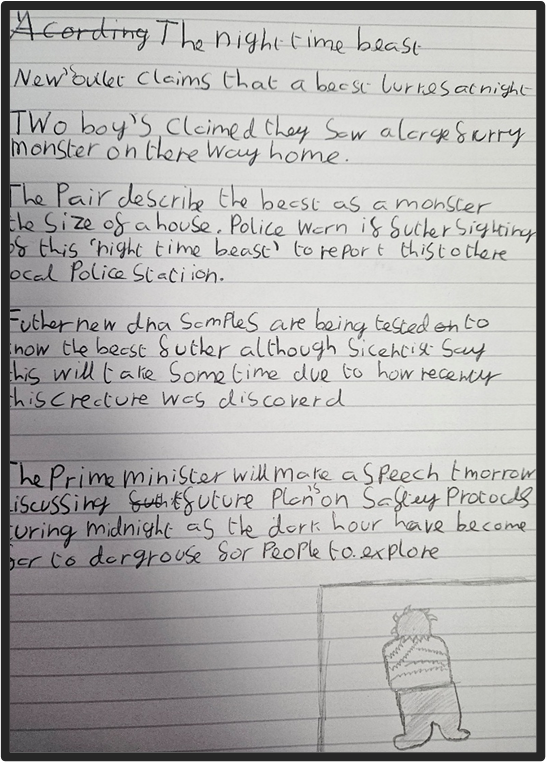 Acording The night time beast
New's oulet claims that a beast lurkes at night
Two boy's claimed they saw a large furry
monster on there way home.
The Pair describe the beast as a monster
the size of a house. Police warn if futher sighting
of this 'night time beast' to report this to there
ocal Police Statiion.
Futher new dna samples are being tested on to
now the beast futher although Sicentist say
this will take some time due to how recently
this creature was discoverd
The Prime minister will make a speech tmorrow
iscussing future Plan's on Saftey Protocols
uring midnight as the dark hour have become
far to dargrouse for People to explore